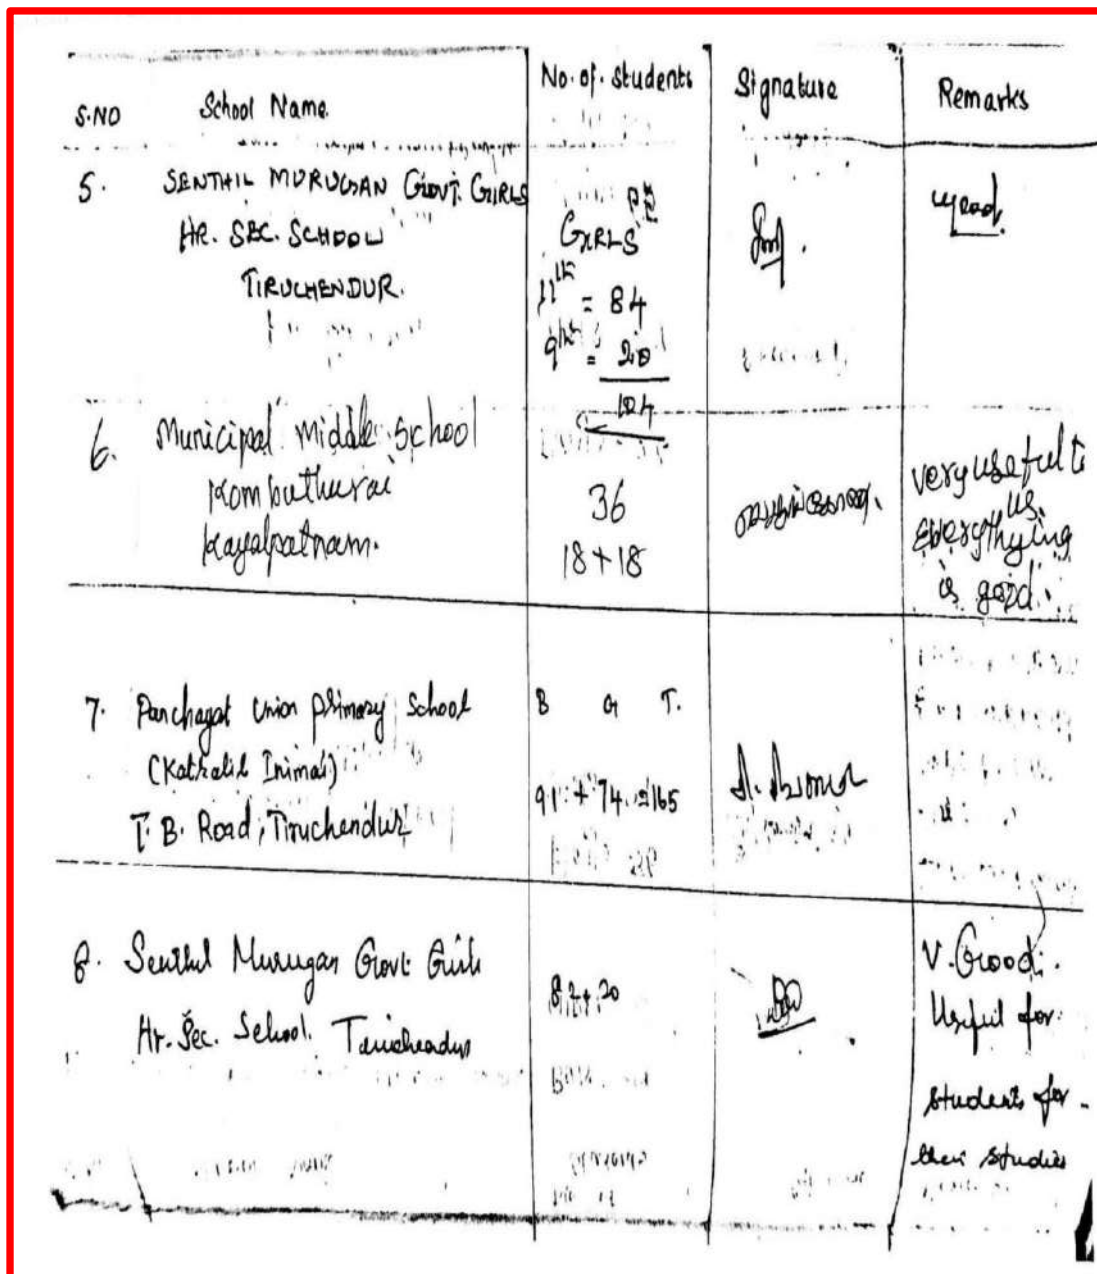 S.NO School Name. No. of. students Signature Remarks
5. SENTHIL MURUGAN GOVT. GIRLS
HR. SEC. SCHOOL
TIRUCHENDUR.
GIRLS
11th = 84
9th = 20
104
Good.
6. Municipal middle school
Kombuthurai
Kayalpatnam.
36
18+18
very useful to
us.
everythying
is good.
7. Panchayat union primary school
(Katralil Inimai)
T. B. Road, Tiruchendur
B G T.
91 + 74 = 165
8. Senthil Murugan Govt Girls
Hr. Sec. School. Tiruchendur
82+20
V. Good.
Useful for
students for
their studies